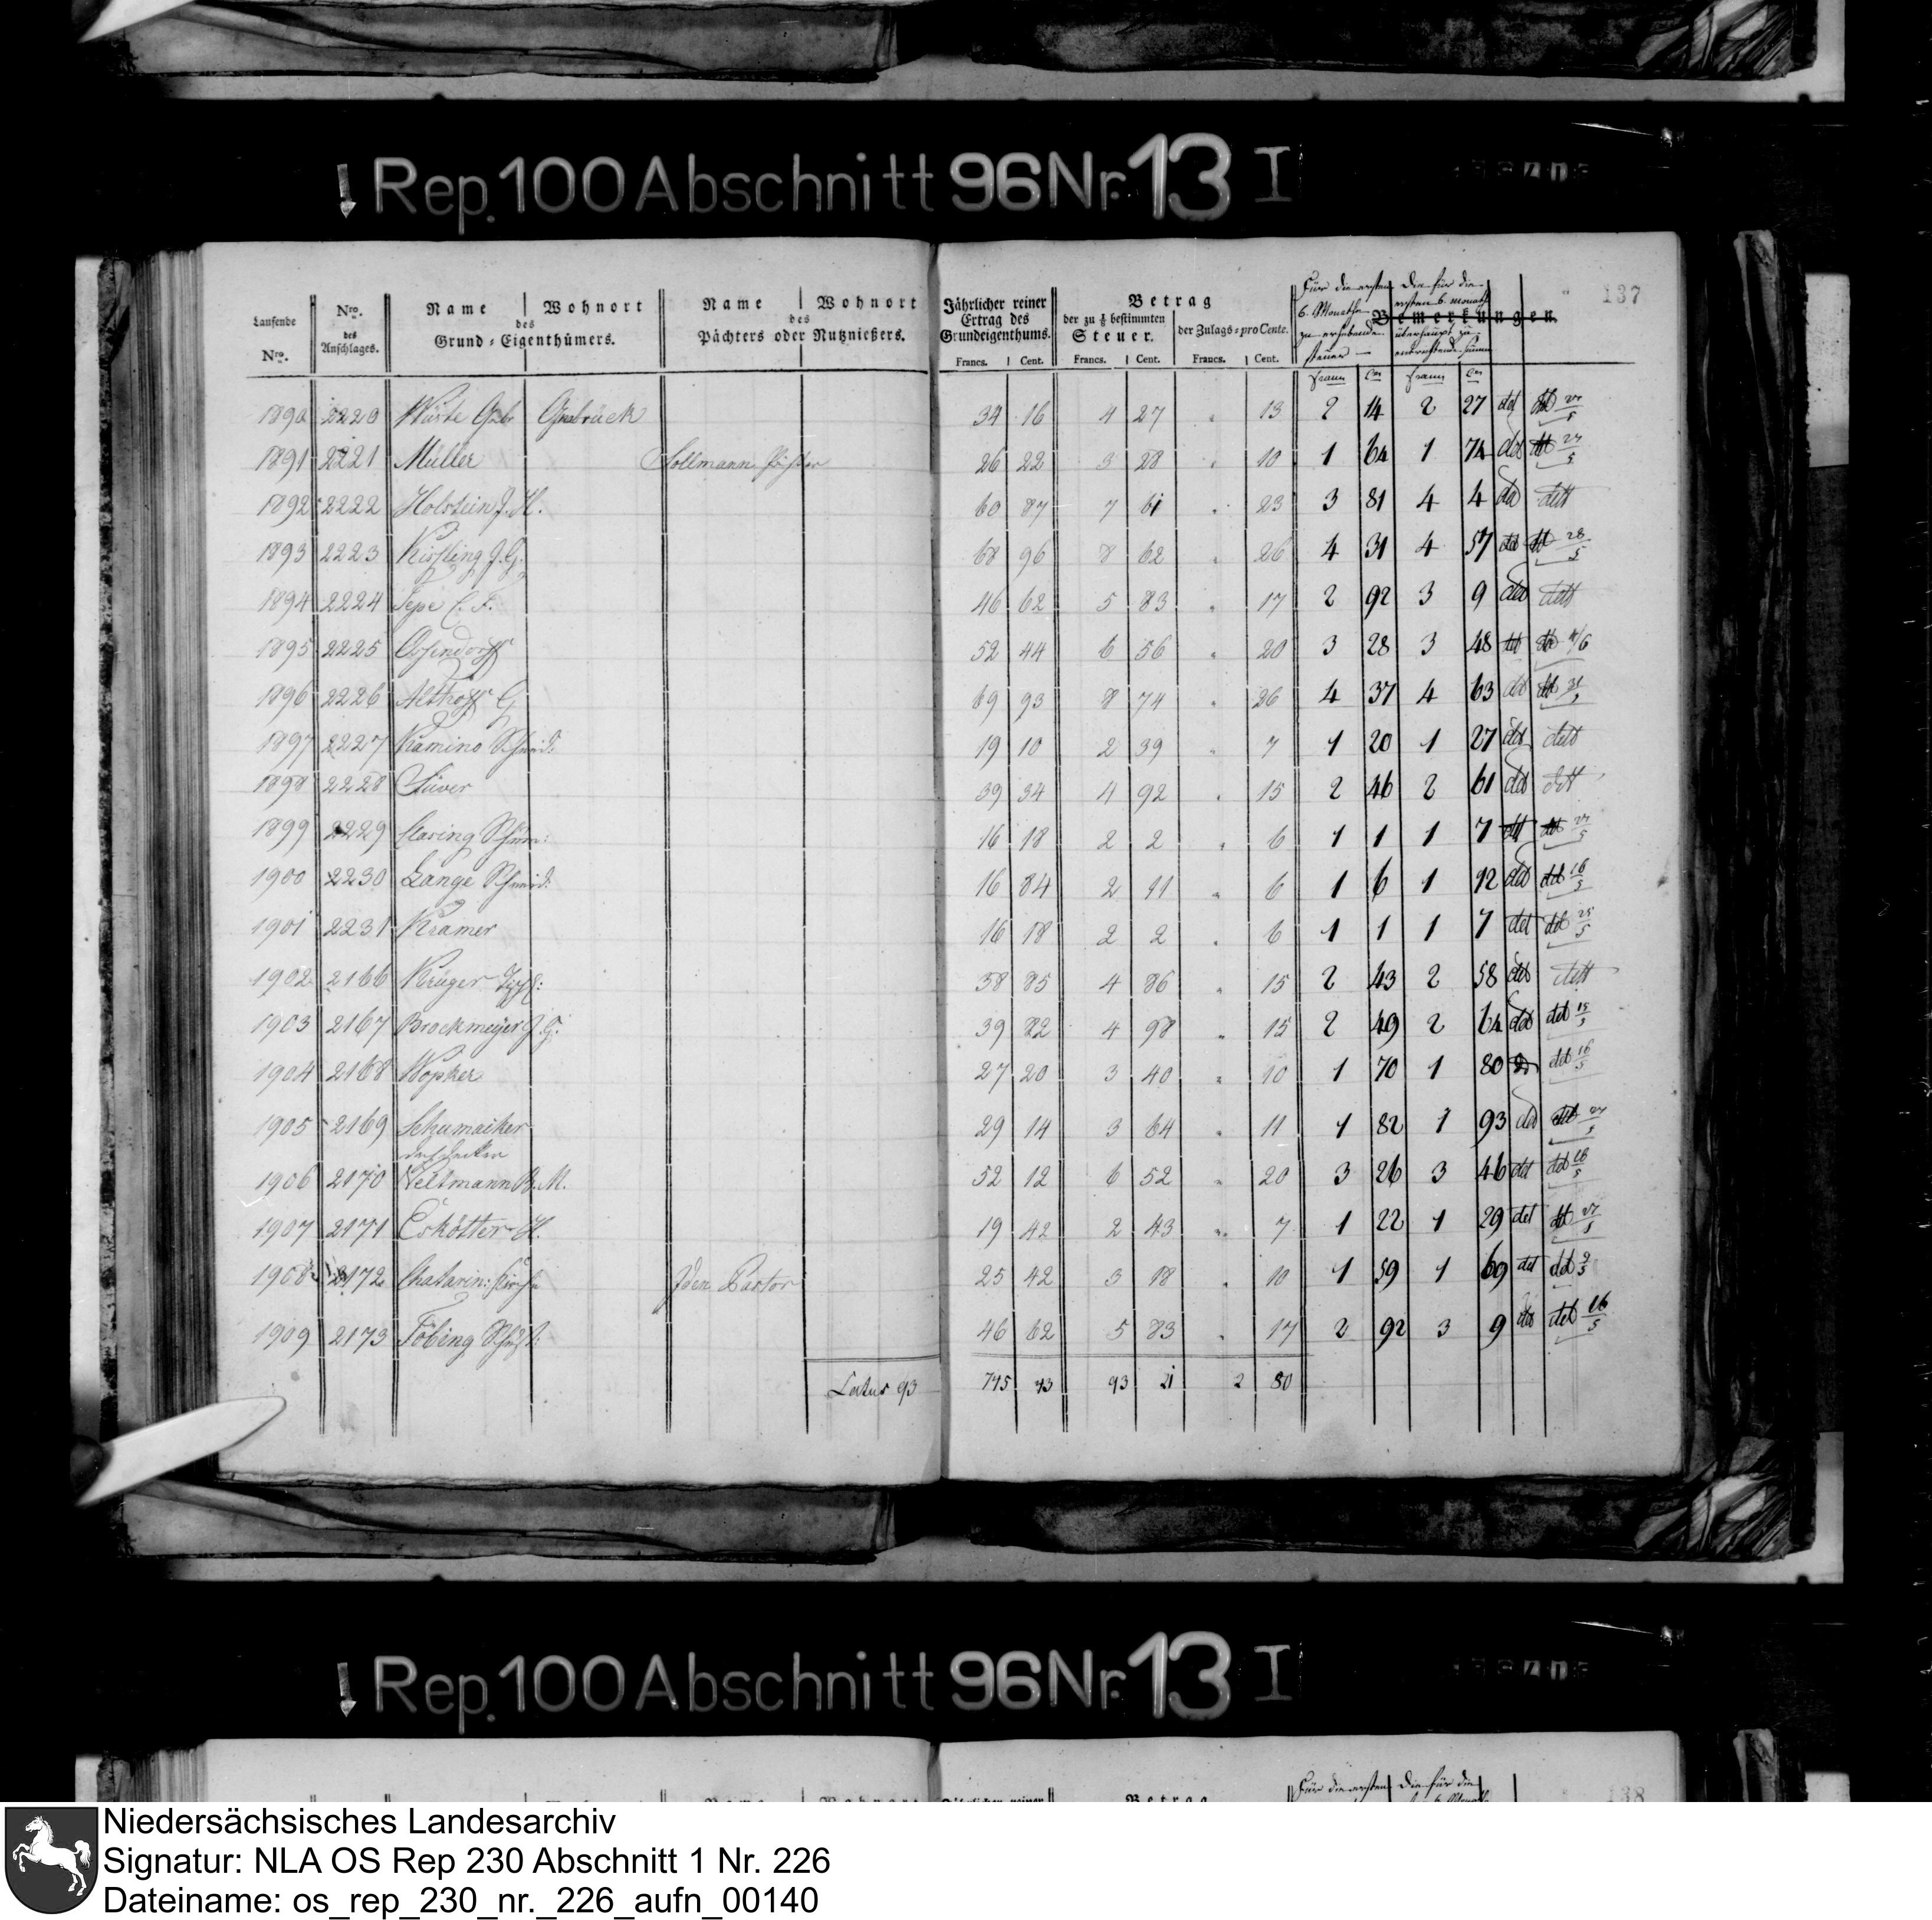 Rep. 100 Abschnitt 96 Nr. 13 I
137
Laufende Nro.
Nro. des Anschlages.
Name | Wohnort des Grund-Eigenthümers.
Name | Wohnort des Pächters oder Nutznießers.
Jährlicher reiner Ertrag des Grundeigenthums. Francs. Cent.
Betrag
der zu 1/8 bestimmten Steuer. Francs. Cent.
der Zulags-pro Cente. Francs. Cent.
Für die ersten 6. Monathe zu erhebende Steuer
Die für die ersten 6. Monathe überhaupt zu entrichtende Summe
Bemerkungen.
Francs Cen Francs Cen
1890 2220 Osnabrück 34 16 4 27 " 13 2 14 2 27 det 27/5
1891 2221 Müller 26 22 3 28 " 10 1 64 1 74 det 27/5
1892 2222 Holstein J. H. 60 87 7 61 " 23 3 81 4 4 dett
1893 2223 Kissling J. G. 68 96 8 62 " 26 4 31 4 57 det 28/5
1894 2224 Sepe C. F. 46 62 5 83 " 17 2 92 3 9 det dett
1895 2225 52 44 6 56 " 20 3 28 3 48 det
1896 2226 Althoff G 69 93 8 74 " 26 4 37 4 63 det
1897 2227 Kramino Schmid: 19 10 2 39 " 7 1 20 1 27 det dett
1898 2228 Stüver 39 34 4 92 " 15 2 46 2 61 det dett
1899 2229 Claring 16 18 2 2 " 6 1 1 1 7 det det 27/5
1900 2230 Lange Schmid: 16 84 2 11 " 6 1 6 1 12 det det 16/5
1901 2231 Kramer 16 18 2 2 " 6 1 1 1 7 det det 25/5
1902 2166 Krüger 38 85 4 86 " 15 2 43 2 58 det dett
1903 2167 Brockmeyer J. G. 39 82 4 98 " 15 2 49 2 64 det det 15/5
1904 2168 Wopker 27 20 3 40 " 10 1 70 1 80 det 16/5
1905 2169 Schumaiker 29 14 3 64 " 11 1 82 1 93 det det 27/5
1906 2170 Veltmann B. M. 52 12 6 52 " 20 3 26 3 46 det det 28/5
1907 2171 Eskötter H. 19 42 2 43 " 7 1 22 1 29 det det 27/5
1908 2172 Chatarin: Kirche Pastor 25 42 3 18 " 10 1 59 1 69 det det
1909 2173 Töbing 46 62 5 83 " 17 2 92 3 9 det det 16/5
Latus 93 745 73 93 21 2 80
Rep. 100 Abschnitt 96 Nr. 13 I
Für die ersten Die für die
138
Niedersächsisches Landesarchiv
Signatur: NLA OS Rep 230 Abschnitt 1 Nr. 226
Dateiname: os_rep_230_nr._226_aufn_00140